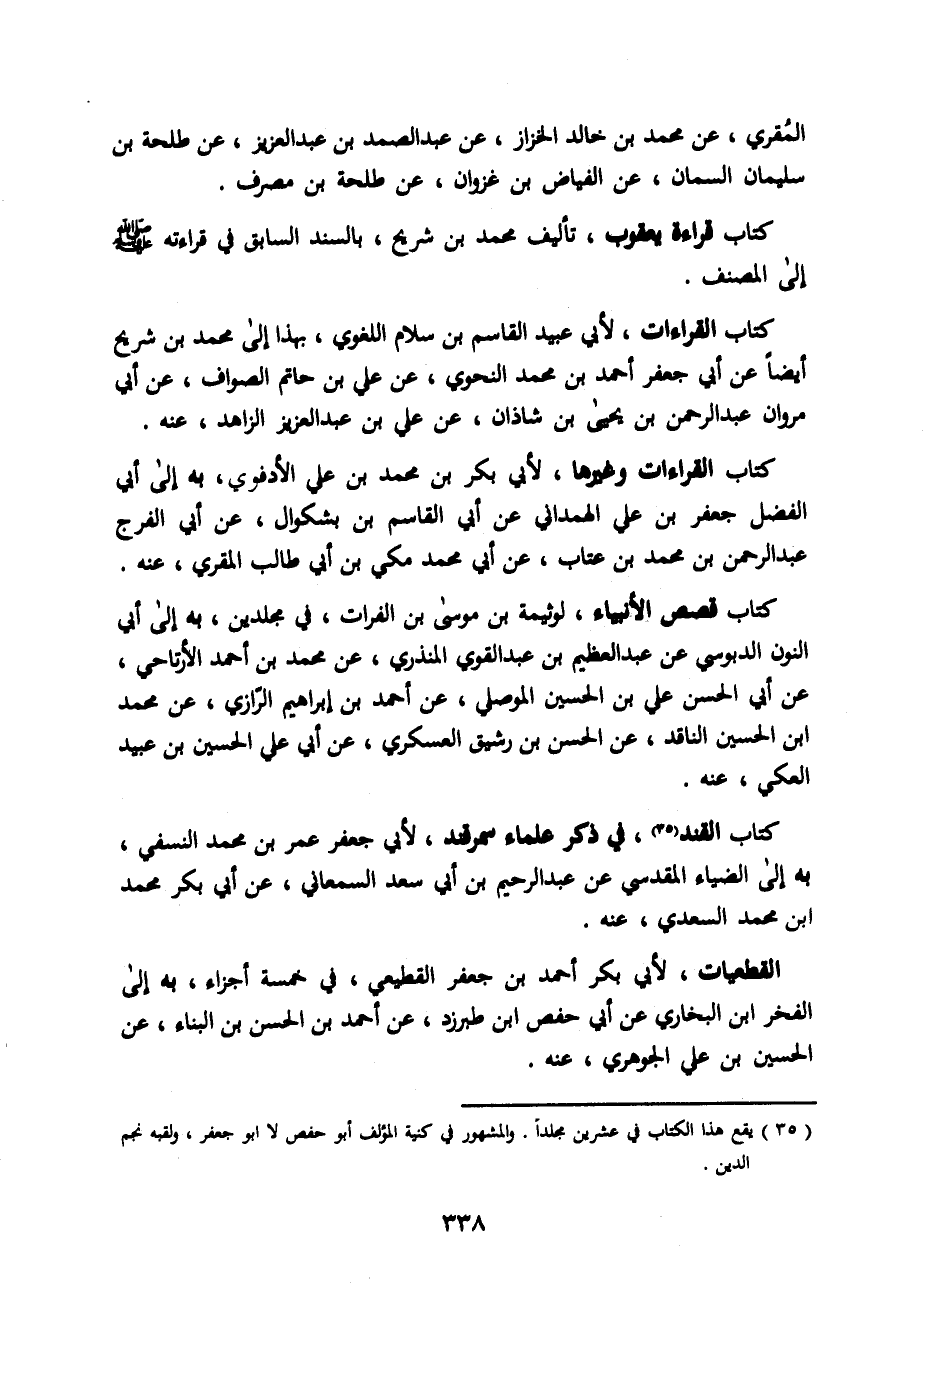 المُقري ، عن محمد بن خالد الخزاز ، عن عبدالصمد بن عبدالعزيز ، عن طلحة بن
سليمان السمان ، عن الفياض بن غزوان ، عن طلحة بن مصرف .
كتاب قراءة يعقوب ، تأليف محمد بن شريح ، بالسند السابق في قراءته ﷺ
إلىٰ المصنف .
كتاب القراءات ، لأبي عبيد القاسم بن سلام اللغوي ، بهذا إلىٰ محمد بن شريح
أيضاً عن أبي جعفر أحمد بن محمد النحوي ، عن علي بن حاتم الصواف ، عن أبي
مروان عبدالرحمن بن يحيىٰ بن شاذان ، عن علي بن عبدالعزيز الزاهد ، عنه .
كتاب القراءات وغيرها ، لأبي بكر بن محمد بن علي الأدفوي ، به إلىٰ أبي
الفضل جعفر بن علي الهمداني عن أبي القاسم بن بشكوال ، عن أبي الفرج
عبدالرحمن بن محمد بن عتاب ، عن أبي محمد مكي بن أبي طالب المقري ، عنه .
كتاب قصص الأنبياء ، لوثيمة بن موسىٰ بن الفرات ، في مجلدين ، به إلىٰ أبي
النون الدبوسي عن عبدالعظيم بن عبدالقوي المنذري ، عن محمد بن أحمد الأرتاحي ،
عن أبي الحسن علي بن الحسين الموصلي ، عن أحمد بن إبراهيم الرّازي ، عن محمد
ابن الحسين الناقد ، عن الحسن بن رشيق العسكري ، عن أبي علي الحسين بن عبيد
العكي ، عنه .
كتاب القند(٣٥) ، في ذكر علماء سمرقند ، لأبي جعفر عمر بن محمد النسفي ،
به إلىٰ الضياء المقدسي عن عبدالرحيم بن أبي سعد السمعاني ، عن أبي بكر محمد
ابن محمد السعدي ، عنه .
القطعيات ، لأبي بكر أحمد بن جعفر القطيعي ، في خمسة أجزاء ، به إلىٰ
الفخر ابن البخاري عن أبي حفص ابن طبرزد ، عن أحمد بن الحسن بن البناء ، عن
الحسين بن علي الجوهري ، عنه .
( ٣٥ ) يقع هذا الكتاب في عشرين مجلداً . والمشهور في كنية المؤلف أبو حفص لا ابو جعفر ، ولقبه نجم
الدين .
٣٣٨